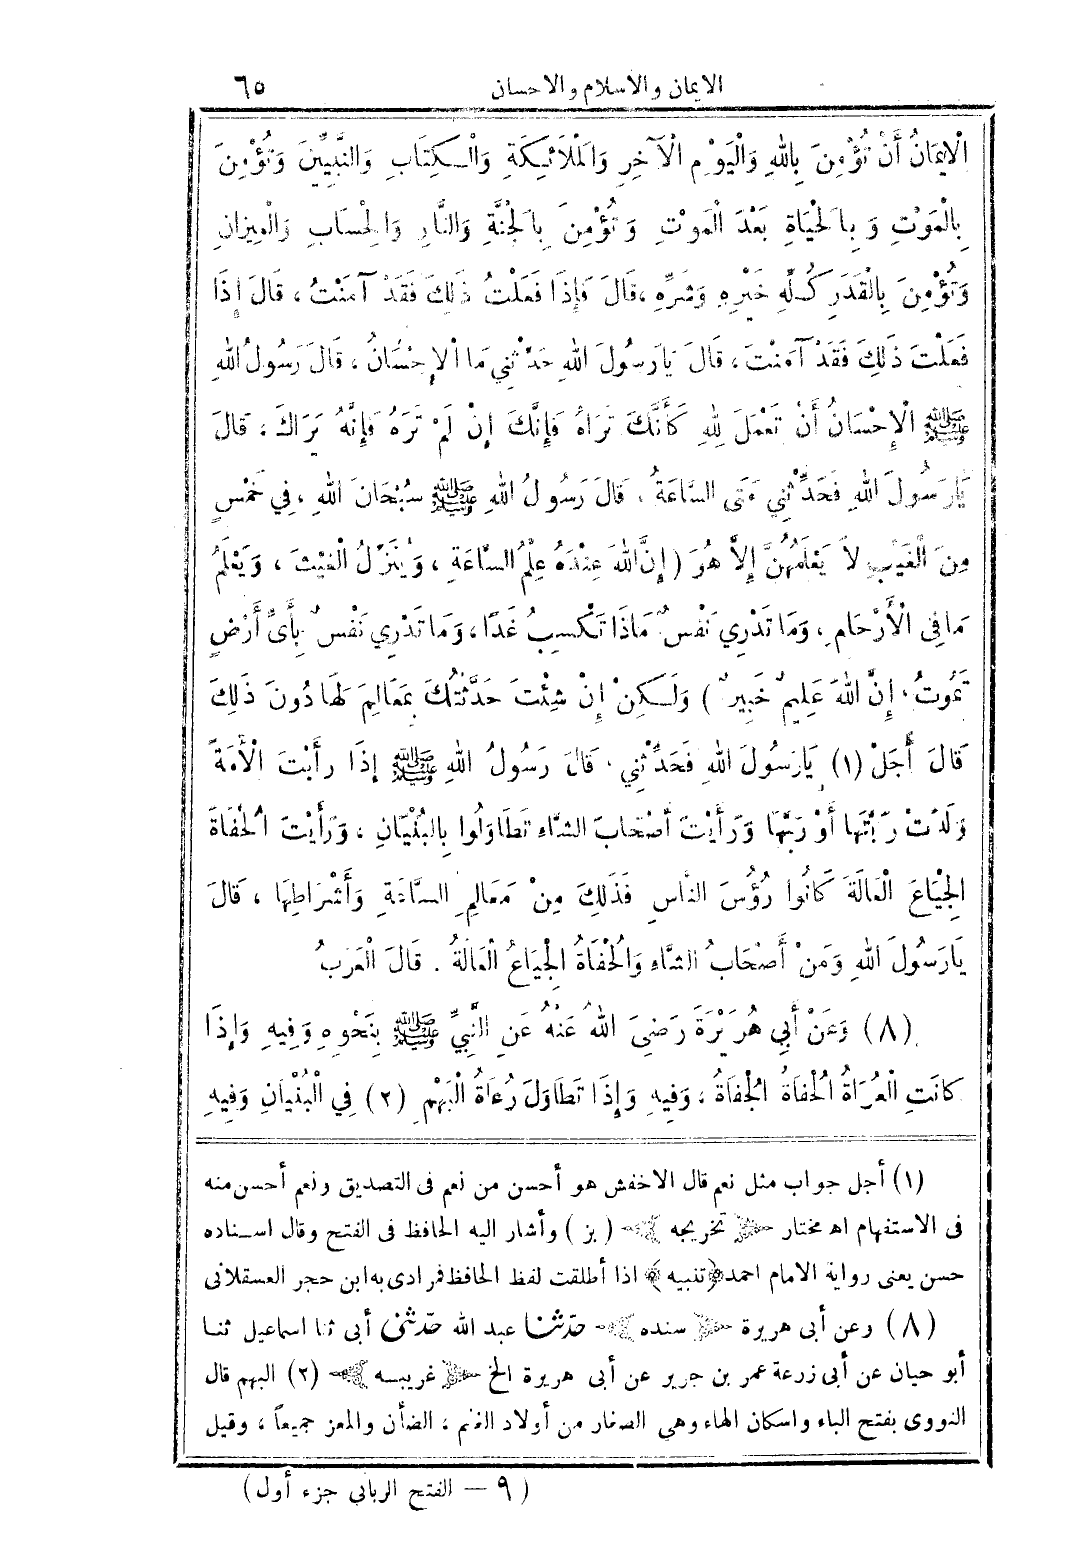 الايمان والاسلام والاحسان ٦٥
الْإِيمَانُ أَنْ تُؤْمِنَ بِاللهِ وَالْيَوْمِ الْآخِرِ وَالْمَلَائِكَةِ وَالْكِتَابِ وَالنَّبِيِّينَ وَتُؤْمِنَ
بِالْمَوْتِ وَبِالْحَيَاةِ بَعْدَ الْمَوْتِ وَتُؤْمِنَ بِالْجَنَّةِ وَالنَّارِ وَالْحِسَابِ وَالْمِيزَانِ
وَتُؤْمِنَ بِالْقَدَرِ كُلِّهِ خَيْرِهِ وَشَرِّهِ ، قَالَ فَإِذَا فَعَلْتُ ذَلِكَ فَقَدْ آمَنْتُ ، قَالَ إِذَا
فَعَلْتَ ذَلِكَ فَقَدْ آمَنْتَ ، قَالَ يَارَسُولَ اللهِ حَدِّثْنِي مَا الْإِحْسَانُ ، قَالَ رَسُولُ اللهِ
ﷺ الْإِحْسَانُ أَنْ تَعْمَلَ لِلهِ كَأَنَّكَ تَرَاهُ فَإِنَّكَ إِنْ لَمْ تَرَهُ فَإِنَّهُ يَرَاكَ ، قَالَ
يَارَسُولَ اللهِ فَحَدِّثْنِي مَتَى السَّاعَةُ ، قَالَ رَسُولُ اللهِ ﷺ سُبْحَانَ اللهِ ، فِي خَمْسٍ
مِنَ الْغَيْبِ لَا يَعْلَمُهُنَّ إِلَّا هُوَ ( إِنَّ اللهَ عِنْدَهُ عِلْمُ السَّاعَةِ ، وَيُنَزِّلُ الْغَيْثَ ، وَيَعْلَمُ
مَا فِي الْأَرْحَامِ ، وَمَا تَدْرِي نَفْسٌ مَاذَا تَكْسِبُ غَدًا ، وَمَا تَدْرِي نَفْسٌ بِأَيِّ أَرْضٍ
تَمُوتُ ، إِنَّ اللهَ عَلِيمٌ خَبِيرٌ ) وَلَكِنْ إِنْ شِئْتَ حَدَّثْتُكَ بِمَعَالِمَ لَهَا دُونَ ذَلِكَ
قَالَ أَجَلْ (١) يَارَسُولَ اللهِ فَحَدِّثْنِي ، قَالَ رَسُولُ اللهِ ﷺ إِذَا رَأَيْتَ الْأَمَةَ
وَلَدَتْ رَبَّتَهَا أَوْ رَبَّهَا وَرَأَيْتَ أَصْحَابَ الشَّاءِ تَطَاوَلُوا بِالْبُنْيَانِ ، وَرَأَيْتَ الْحُفَاةَ
الْجِيَاعَ الْعَالَةَ كَانُوا رُؤُسَ النَّاسِ فَذَلِكَ مِنْ مَعَالِمِ السَّاعَةِ وَأَشْرَاطِهَا ، قَالَ
يَارَسُولَ اللهِ وَمَنْ أَصْحَابُ الشَّاءِ وَالْحُفَاةُ الْجِيَاعُ الْعَالَةُ . قَالَ الْعَرَبُ
(٨) وَعَنْ أَبِي هُرَيْرَةَ رَضِيَ اللهُ عَنْهُ عَنِ النَّبِيِّ ﷺ بِنَحْوِهِ وَفِيهِ وَإِذَا
كَانَتِ الْعُرَاةُ الْحُفَاةُ الْجُفَاةُ ، وَفِيهِ وَإِذَا تَطَاوَلَ رُعَاةُ الْبَهْمِ (٢) فِي الْبُنْيَانِ وَفِيهِ
(١) أجل جواب مثل نعم قال الاخفش هو أحسن من نعم فى التصديق ونعم أحسن منه
فى الاستفهام اه مختار ﴿ تخريجه ﴾ ( بز ) وأشار اليه الحافظ فى الفتح وقال اسناده
حسن يعنى رواية الامام احمد ﴿تنبيه﴾ اذا أطلقت لفظ الحافظ فمرادى به ابن حجر العسقلانى
(٨) وعن أبى هريرة ﴿ سنده ﴾ حدّثنا عبد الله حدّثنى أبى ثنا اسماعيل ثنا
أبو حيان عن أبى زرعة عمر بن جرير عن أبى هريرة الخ ﴿ غريبه ﴾ (٢) البهم قال
النووى بفتح الباء واسكان الهاء وهي الصغار من أولاد الغنم ، الضأن والمعز جميعاً ، وقيل
( ٩ — الفتح الرباني جزء أول )